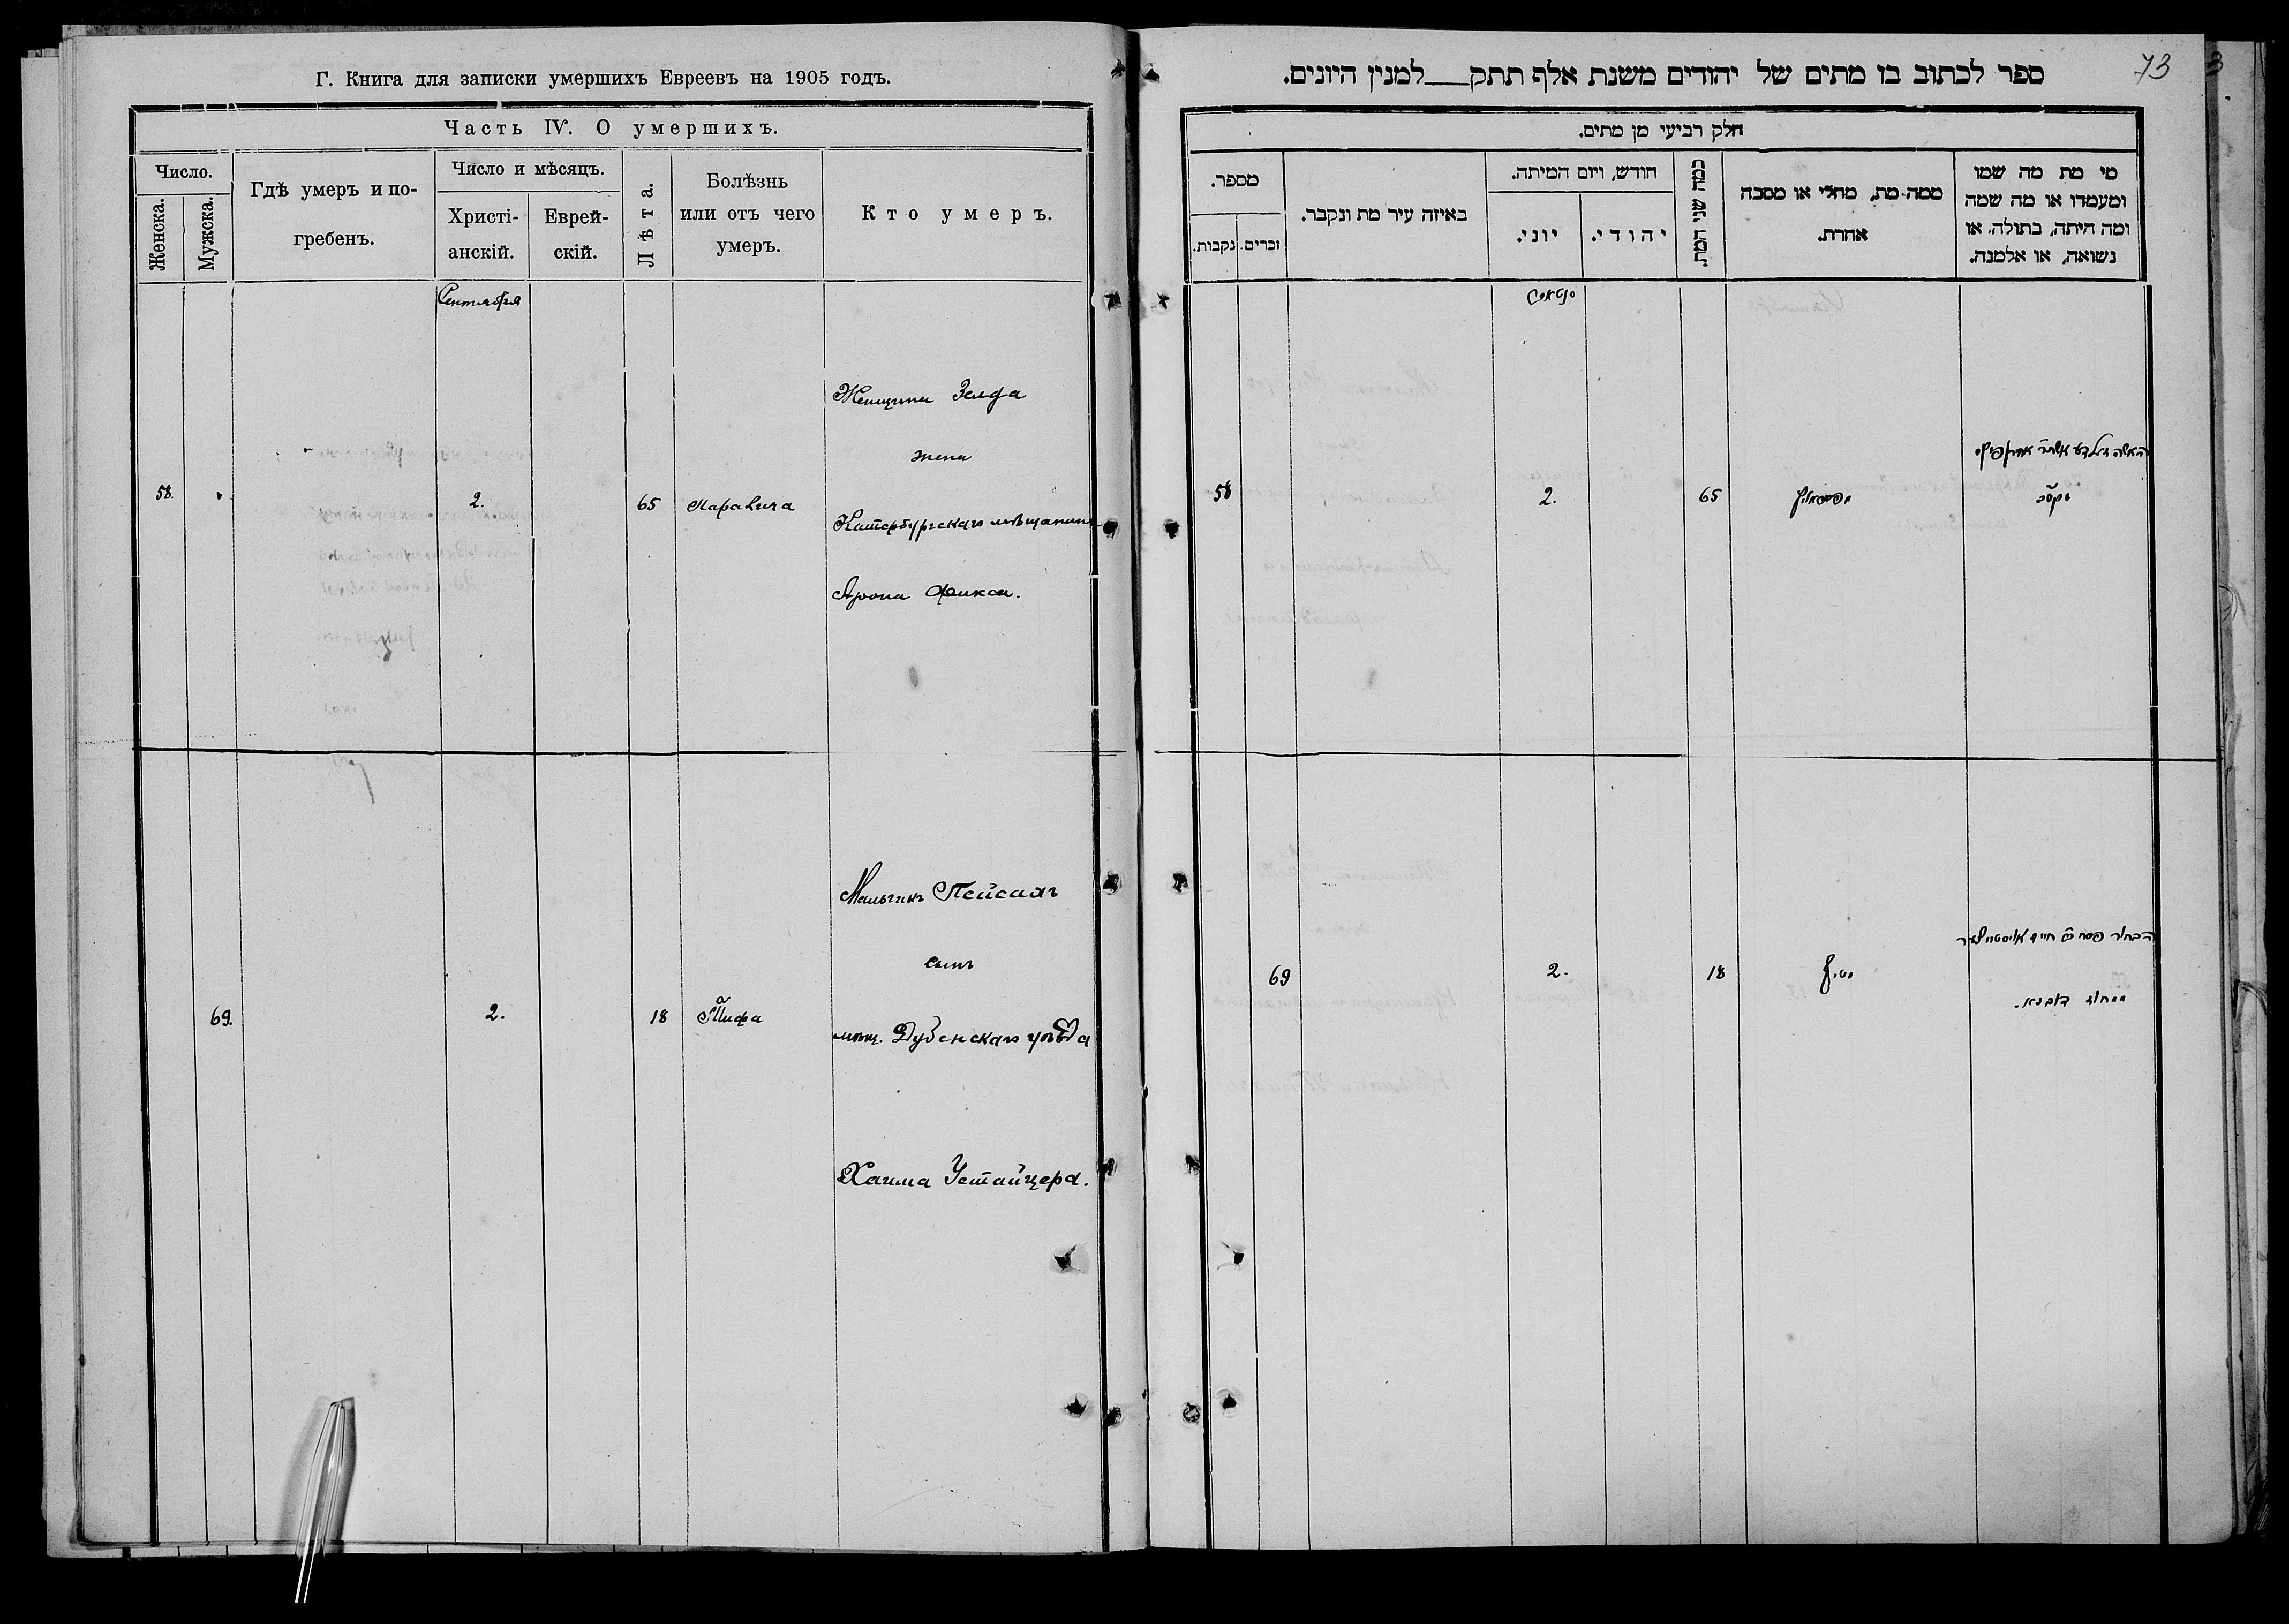 Г. Книга для записки умершихъ Евреевъ на 1905 годъ.
Часть IV. О умершихъ.
Число.
Женска.
Мужска.
Гдѣ умеръ и по-
гребенъ.
Число и мѣсяцъ.
Христі-
анскій.
Еврей-
скій.
Лѣта.
Болѣзнь
или отъ чего
умеръ.
Кто умеръ.
Сентября
58.
2.
65
Женщина Зелда
жена
мѣщанина
Арона Фикса.
69.
2.
18
Тифа
Мальчикъ Пейсахъ
сынъ
мѣщ. Дубенскаго уѣзда
Хаима Устайцера.
73
3
ספר לכתוב בו מתים של יהודים משנת אלף תתק למנין היונים.
חלק רביעי מן מתים.
מספר.
נקבות.
זכרים.
באיזה עיר מת ונקבר.
חודש, ויום המיתה.
יוני.
יהודי.
כמה שני המת.
ממה מת, מחלי או מסבה
אחרת.
מי מת מה שמו
ומעמדו או מה שמה
ומה היתה, בתולה, או
נשואה, או אלמנה.
58
2.
65
69
2.
18